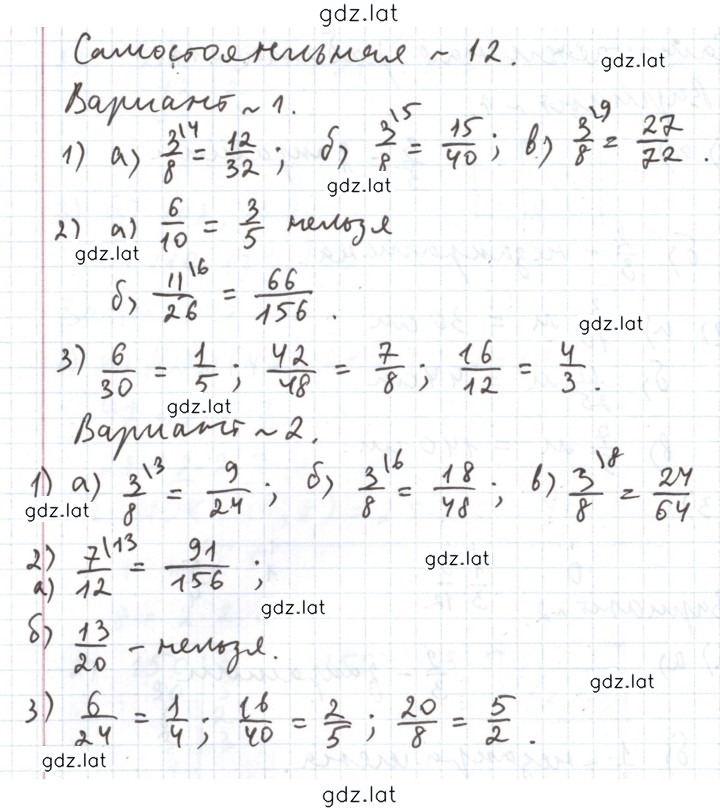 gdz.lat
Самостоятельная ~ 12.
gdz.lat
Вариант ~ 1.
1) а) 3\4/8 = 12/32; б) 3\5/8 = 15/40; в) 3\9/8 = 27/72.
gdz.lat
2) а) 6/10 = 3/5 нельзя
gdz.lat
б) 11\6/26 = 66/156.
gdz.lat
3) 6/30 = 1/5; 42/48 = 7/8; 16/12 = 4/3.
gdz.lat
Вариант ~ 2.
1) а) 3\3/8 = 9/24; б) 3\6/8 = 18/48; в) 3\8/8 = 24/64
gdz.lat
2) а) 7\13/12 = 91/156;
gdz.lat
gdz.lat
б) 13/20 - нельзя.
gdz.lat
3) 6/24 = 1/4; 16/40 = 2/5; 20/8 = 5/2.
gdz.lat
gdz.lat